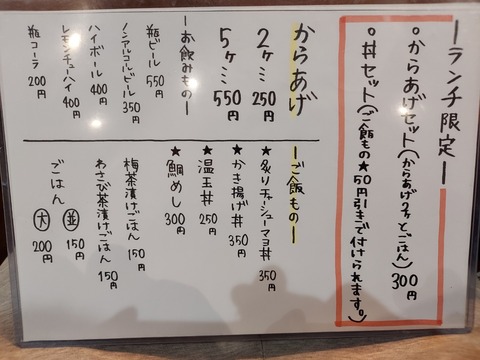 ーランチ限定ー
○からあげセット(からあげ2ケとごはん)300円
○丼セット(ご飯もの★50円引きで付けられます。)
からあげ
2ケ…250円
5ケ…550円
ーお飲みものー
瓶ビール 550円
ノンアルコールビール 350円
ハイボール 400円
レモンチューハイ 400円
瓶コーラ 200円
ーご飯ものー
★炙りチャーシューマヨ丼 350円
★かき揚げ丼 350円
★温玉丼 250円
★鯛めし 300円
梅茶漬けごはん 150円
わさび茶漬けごはん 150円
ごはん
並 150円
大 200円